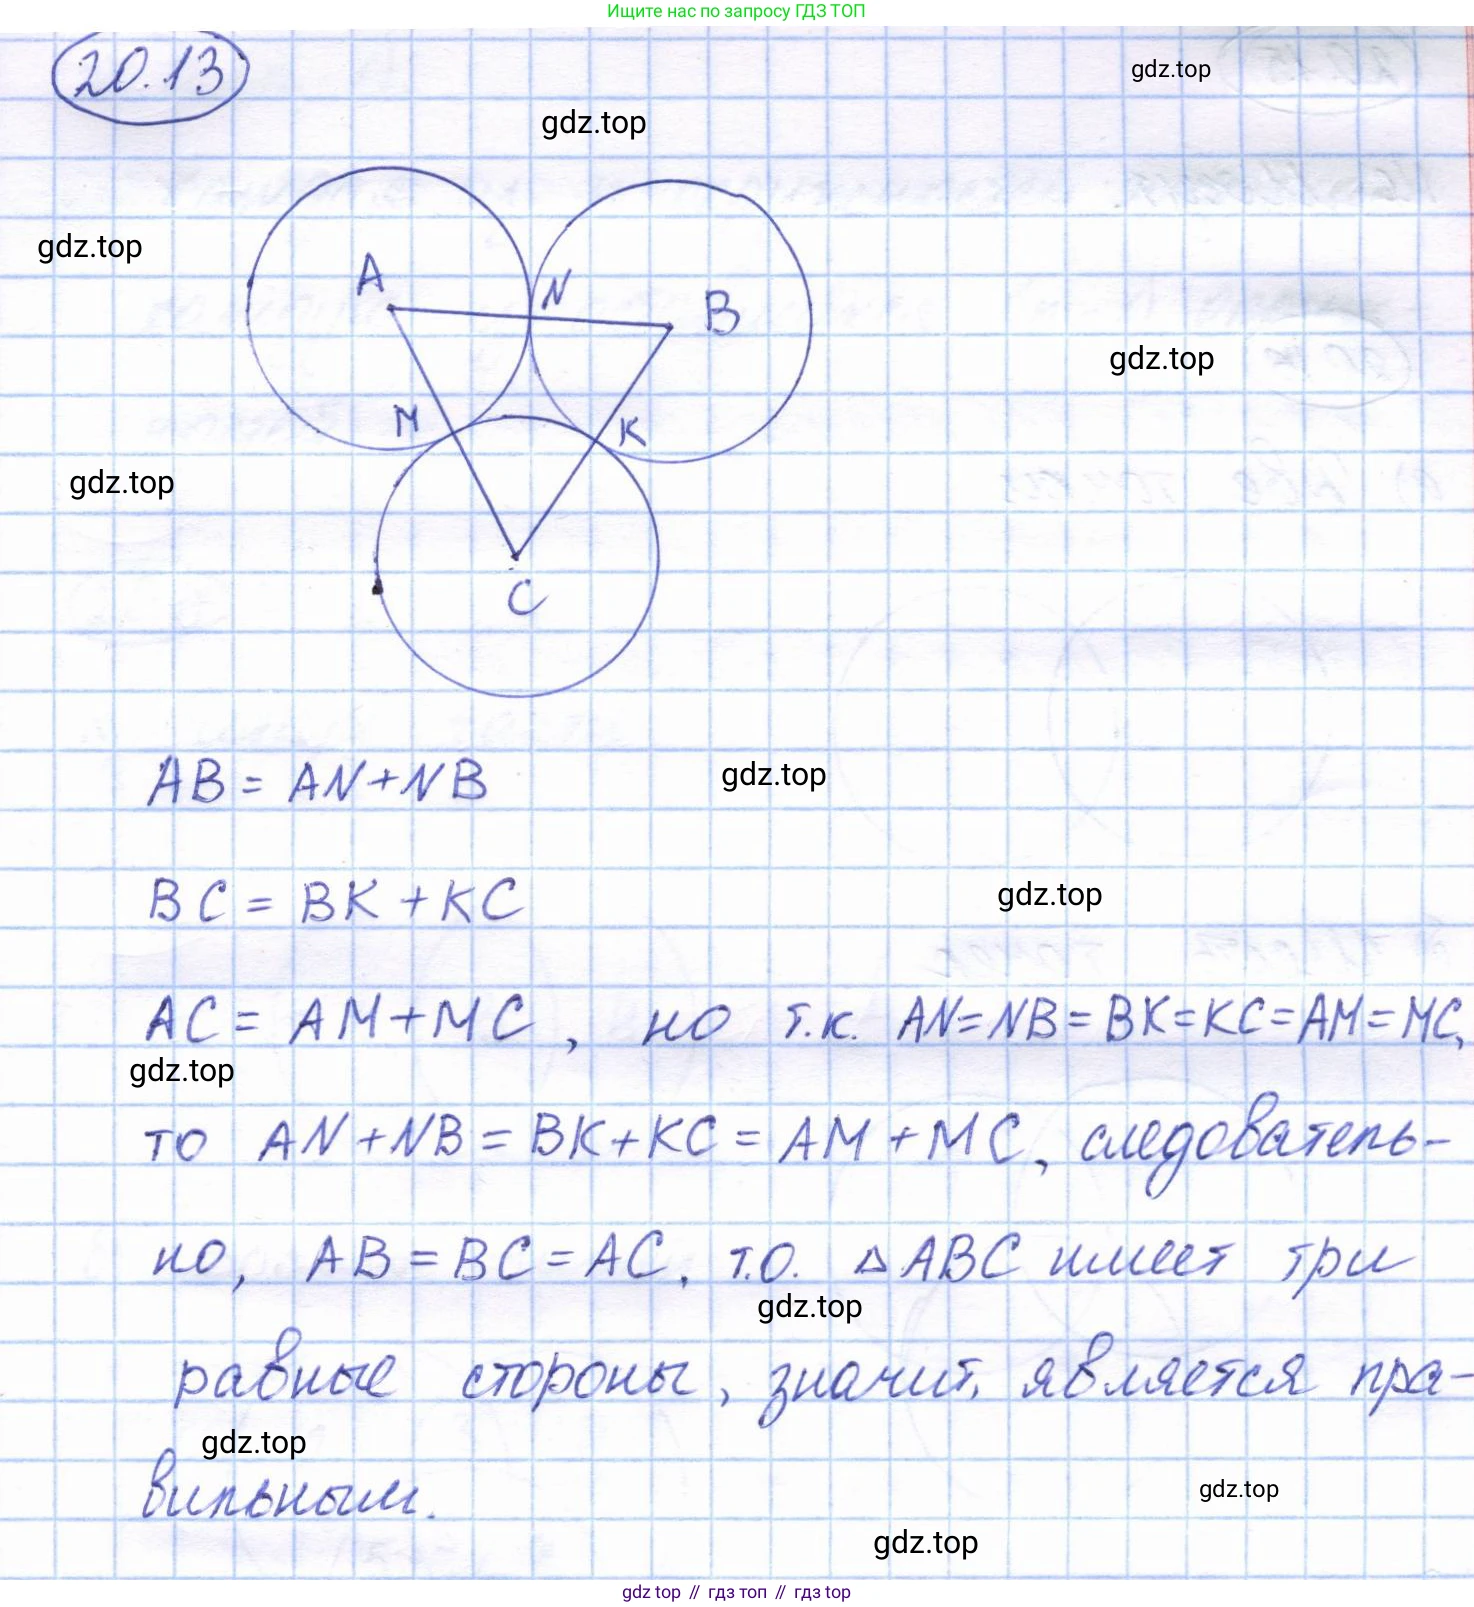 Ищите нас по запросу ГДЗ ТОП
20.13
gdz.top
gdz.top
gdz.top
A
N
B
gdz.top
M
K
gdz.top
C
AB = AN+NB
gdz.top
BC = BK + KC
gdz.top
AC = AM+MC, но т.к. AN=NB=BK=KC=AM=MC,
gdz.top
то AN+NB=BK+KC=AM+MC, следователь-
но, AB=BC=AC, т.о. △ABC имеет три
gdz.top
равные стороны, значит, является пра-
gdz.top
вильным.
gdz.top
gdz.top
gdz top // гдз топ // гдз top